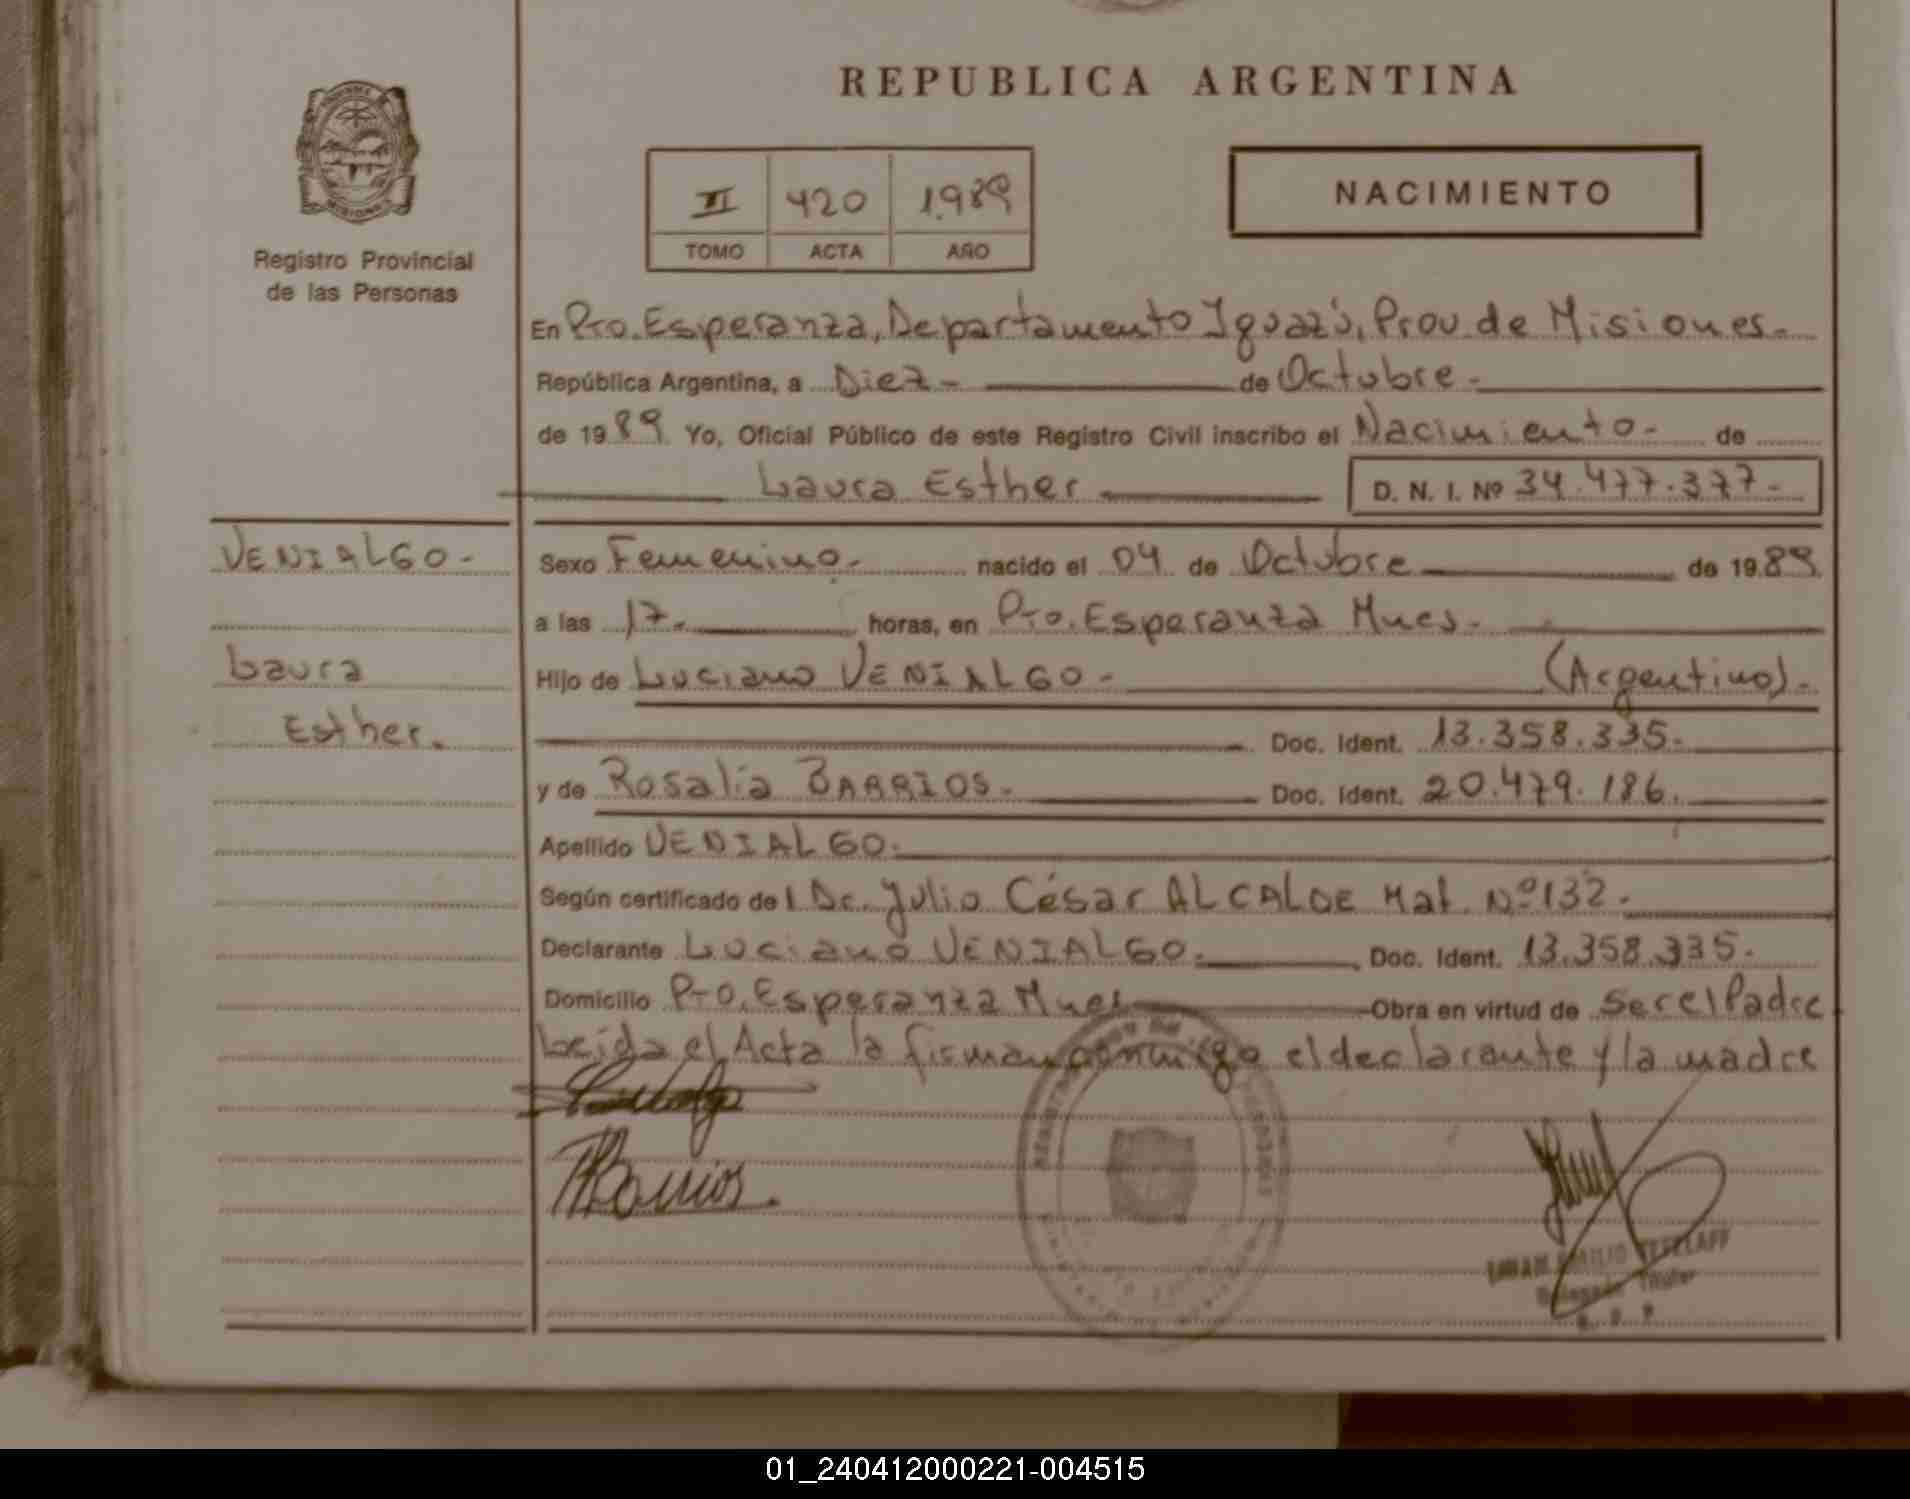 REPUBLICA ARGENTINA
II 420 1.989
TOMO ACTA AÑO
NACIMIENTO
Registro Provincial
de las Personas
En Pto. Esperanza, Departamento Iguazú, Prov. de Misiones.-
República Argentina, a Diez.- de Octubre.-
de 1989 Yo, Oficial Público de este Registro Civil inscribo el Nacimiento.- de
Laura Esther D. N. I. Nº 34.477.377.-
VENIALGO.-
Laura
Esther.
Sexo Femenino.- nacido el 04 de Octubre de 1989
a las 17.- horas, en Pto. Esperanza Mnes.-
Hijo de Luciano VENIALGO.- (Argentino).-
Doc. Ident. 13.358.335.-
y de Rosalía BARRIOS.- Doc. Ident. 20.479.186.
Apellido VENIALGO.
Según certificado del Dr. Julio César ALCALDE Mat. Nº 132.-
Declarante Luciano VENIALGO. Doc. Ident. 13.358.335.-
Domicilio Pto. Esperanza Mnes Obra en virtud de ser el Padre
Leída el Acta la firman conmigo el declarante y la madre
RBarrios.
EMILIO
Delegado Titular
01_240412000221-004515